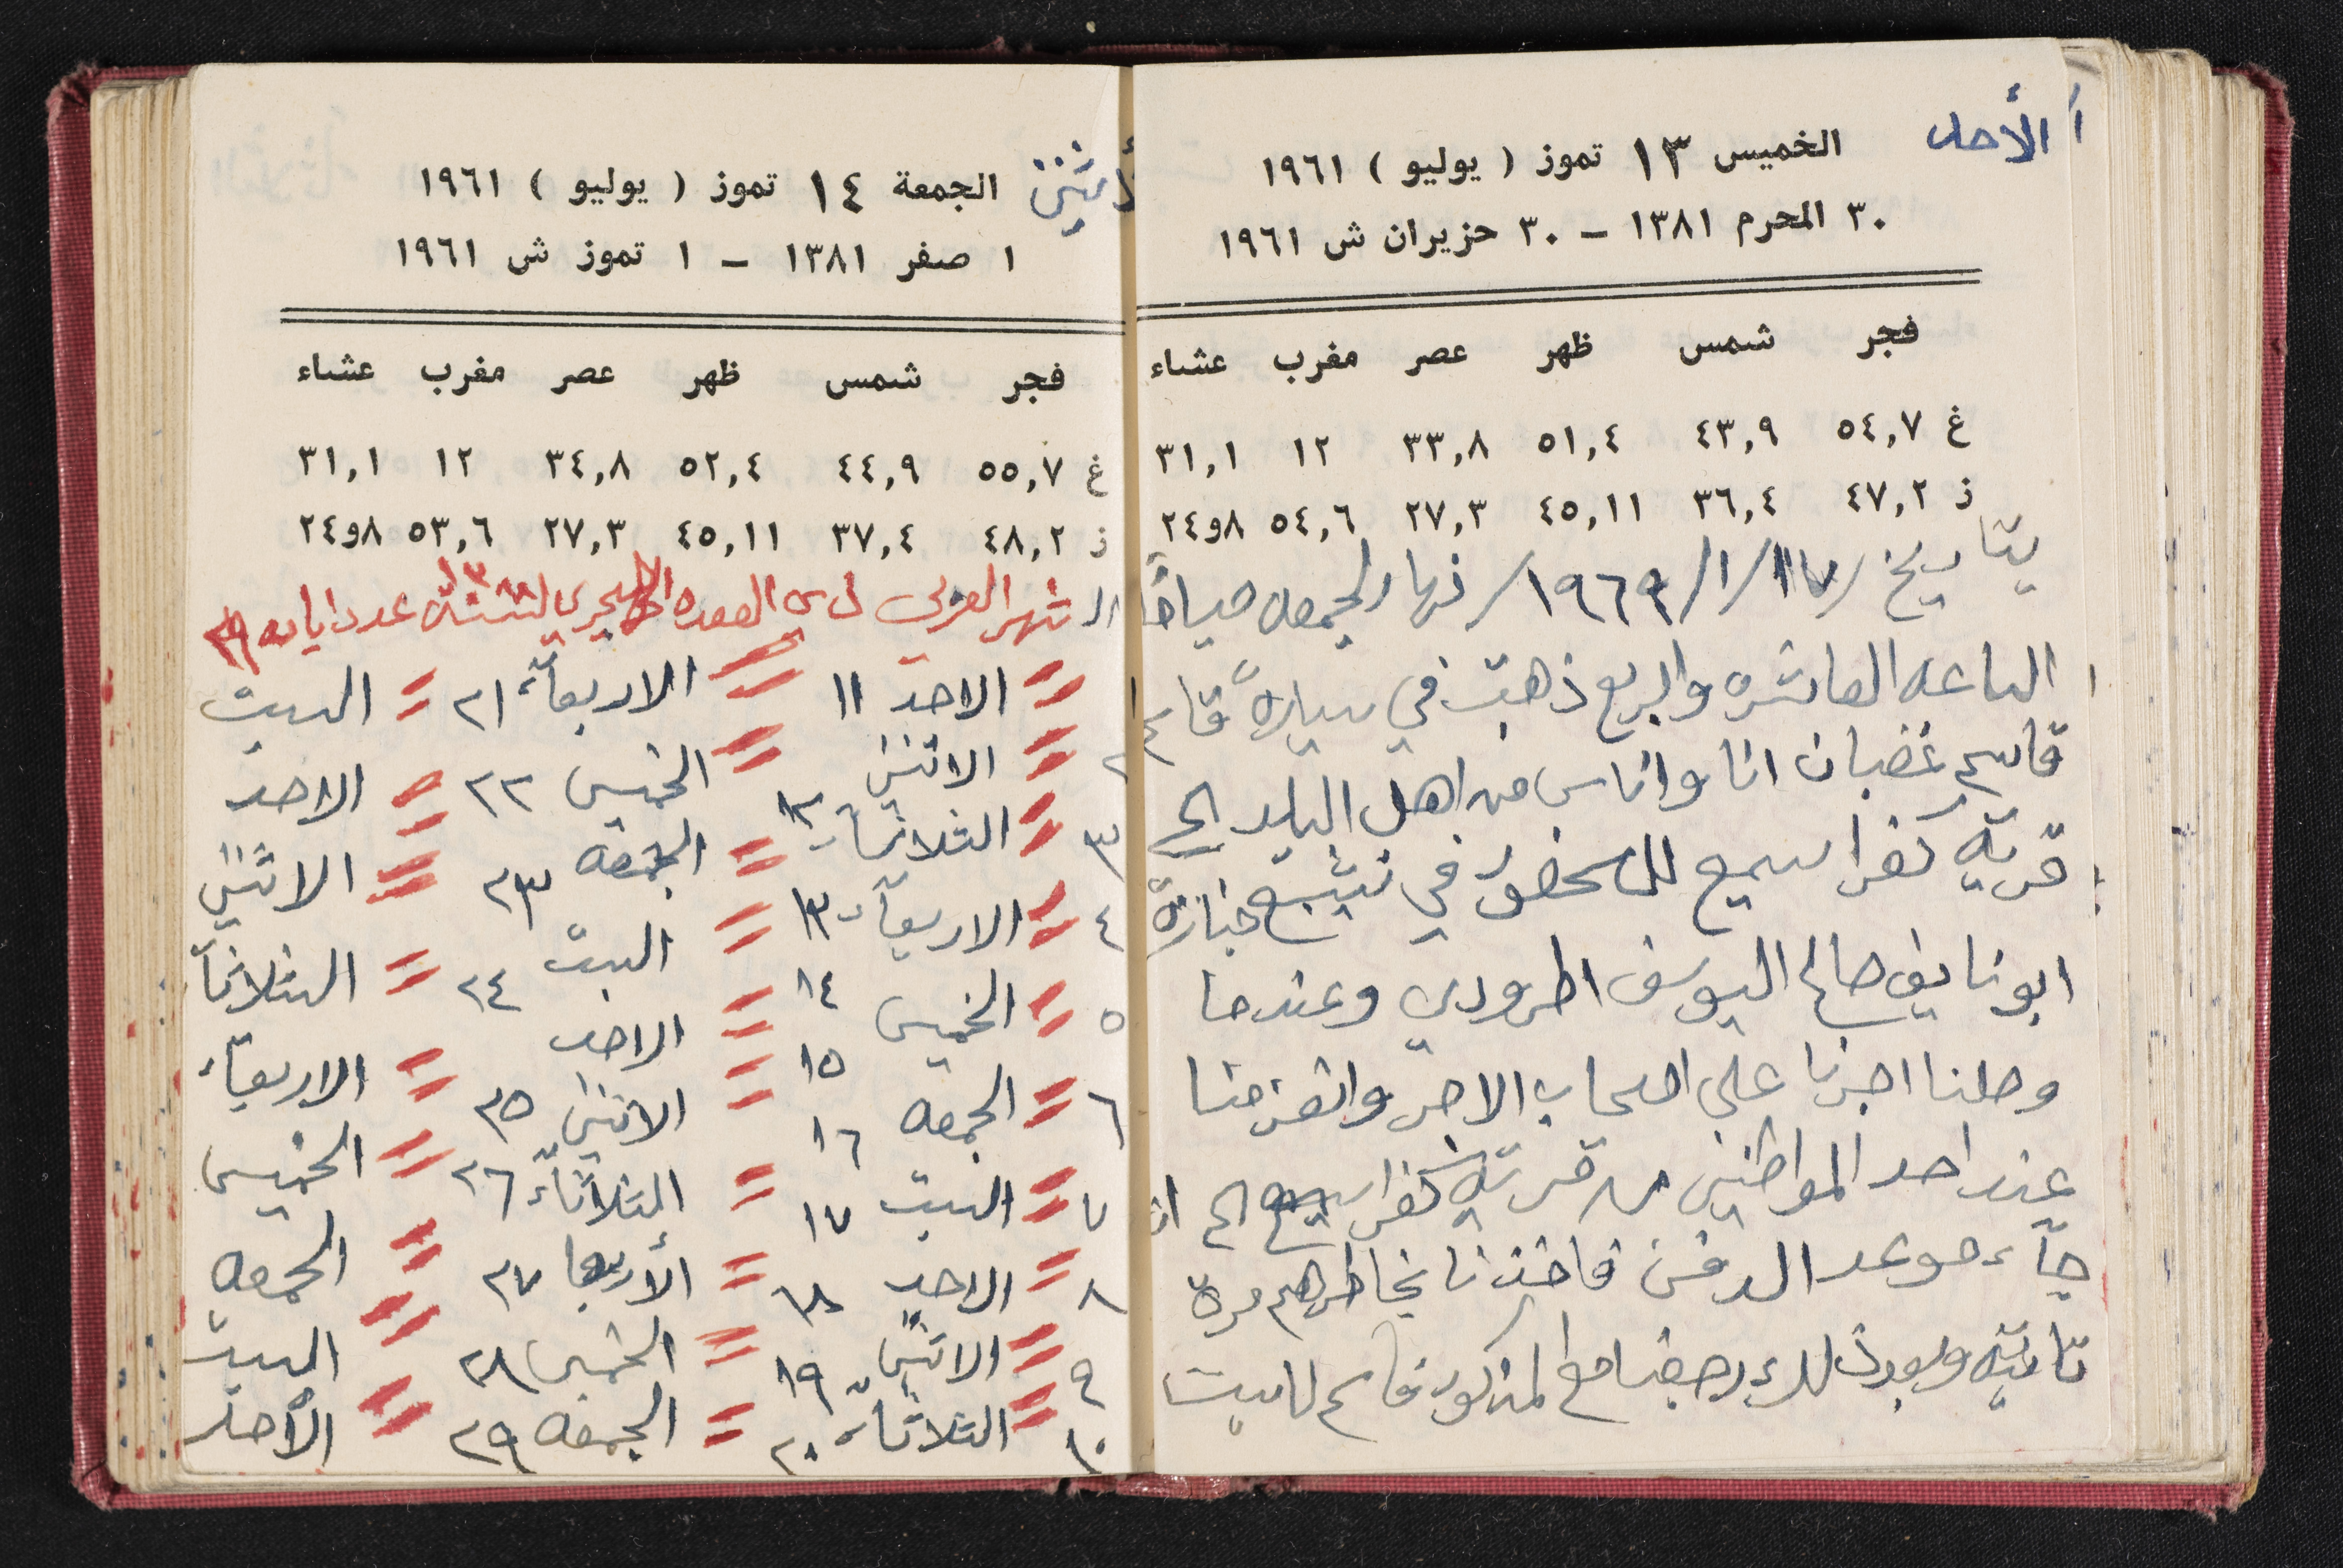 الأحد
الخميس ١٣ تموز ( يوليو ) ١٩٦١
٣٠ المحرم ١٣٨١ – ٣٠ حزيران ش ١٩٦١
فجر شمس ظهر عصر مغرب عشاء
غ ٥٤,٧ ٤٣,٩ ٥١,٤ ٣٣,٨ ١٢ ٣١,١
ز ٤٧,٢ ٣٦,٤ ٤٥,١١ ٢٧,٣ ٥٤,٦ ٨و٢٤
بتاريخ /١٧/١/١٩٦٩/ نهار الجمعه صباحاً
الساعه العاشره والربع ذهبت في سيارة قاسم
قاسم غضبان انا واناس من اهل البلد الى
قرية كفر اسميع للحضور في تشييع جنازة
ابو نايف صالح اليوسف وعندما
وصلنا اجرنا على اصحاب الاجر وانعزمنا
عند احد المواطنين من قرية كفر اسميع الى ان
جاء موعد الدفن فاخذنا بخاطرهم مرة
ثانية وبعد ذلك رجعنا مع المذكور قاسم للبيت
الاثنين
الجمعة ١٤ تموز ( يوليو ) ١٩٦١
١ صفر ١٣٨١ – ١ تموز ش ١٩٦١
فجر شمس ظهر عصر مغرب عشاء
غ ٥٥,٧ ٤٤,٩ ٥٢,٤ ٣٤,٨ ١٢ ٣١,١
ز ٤٨,٢ ٣٧,٤ ٤٥,١١ ٢٧,٣ ٥٣,٦ ٨و٢٤
الشهر العربي ذي القعده الهجري لسنة ١٣٨٨ عدد ايامه ٢٩
١ = الاحد ١١ = الاربعاء ٢١ = السبت
٢ = الاثنين ١٢ = الخميس ٢٢ = الاحد
٣ = الثلاثاء ١٣ = الجمعه ٢٣ = الاثنين
٤ = الاربعاء ١٤ = السبت ٢٤ = الثلاثاء
٥ = الخميس ١٥ = الاحد ٢٥ = الاربعاء
٦ = الجمعه ١٦ = الاثنين ٢٦ = الخميس
٧ = السبت ١٧ = الثلاثاء ٢٧ = الجمعه
٨ = الاحد ١٨ = الأربعا ٢٨ = السبت
٩ = الاثنين ١٩ = الخميس ٢٩ = الأحد
١٠ = الثلاثاء ٢٠ = الجمعه